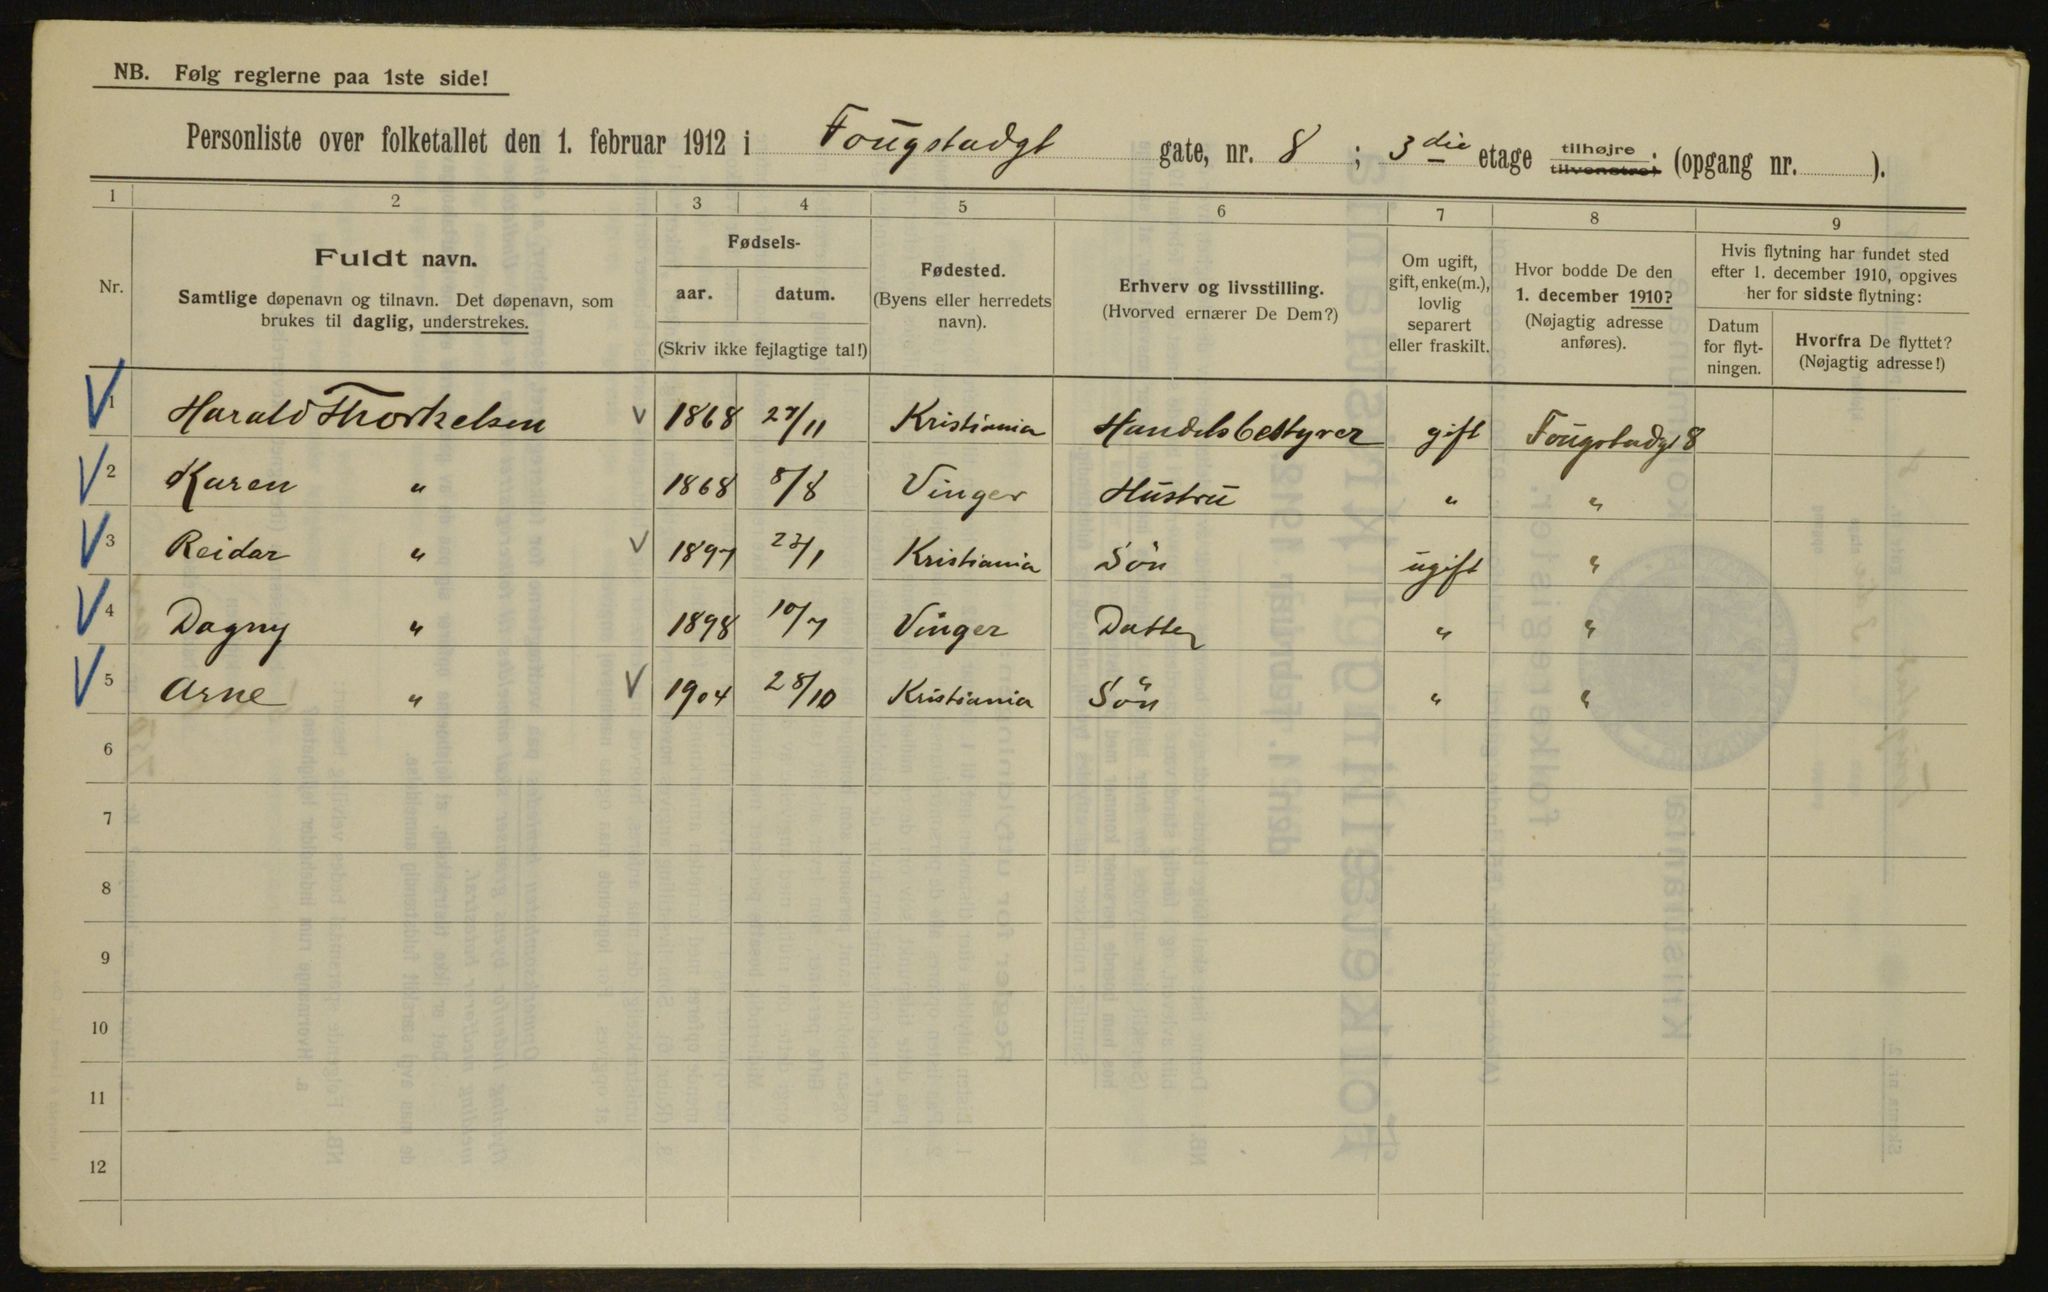 NB. Følg reglerne paa 1ste side!
Personliste over folketallet den 1. februar 1912 i Fougstadgt gate, nr. 8 ; 3die etage tilhøjre tilvenstre) ; (opgang nr. ).
1 2 3 4 5 6 7 8 9
Nr.
Fuldt navn.
Samtlige døpenavn og tilnavn. Det døpenavn, som
brukes til daglig, understrekes.
Fødsels-
aar. datum.
(Skriv ikke fejlagtige tal!)
Fødested.
(Byens eller herredets
navn).
Erhverv og livsstilling.
(Hvorved ernærer De Dem?)
Om ugift,
gift, enke(m.),
lovlig
separert
eller fraskilt.
Hvor bodde De den
1. december 1910?
(Nøjagtig adresse
anføres).
Hvis flytning har fundet sted
efter 1. december 1910, opgives
her for sidste flytning:
Datum
for flyt-
ningen.
Hvorfra De flyttet?
(Nøjagtig adresse!)
1 Harald Thorkelsen 1868 27/11 Kristiania Handelsbestyrer gift Fougstadgt 8
2 Karen " 1868 8/8 Vinger Hustru " "
3 Reidar " 1897 /1 Kristiania Sön ugift "
4 Dagny " 1898 10/7 Vinger Datter " "
5 Arne " 1904 28/10 Kristiania Sön " "
6
7
8
9
10
11
12